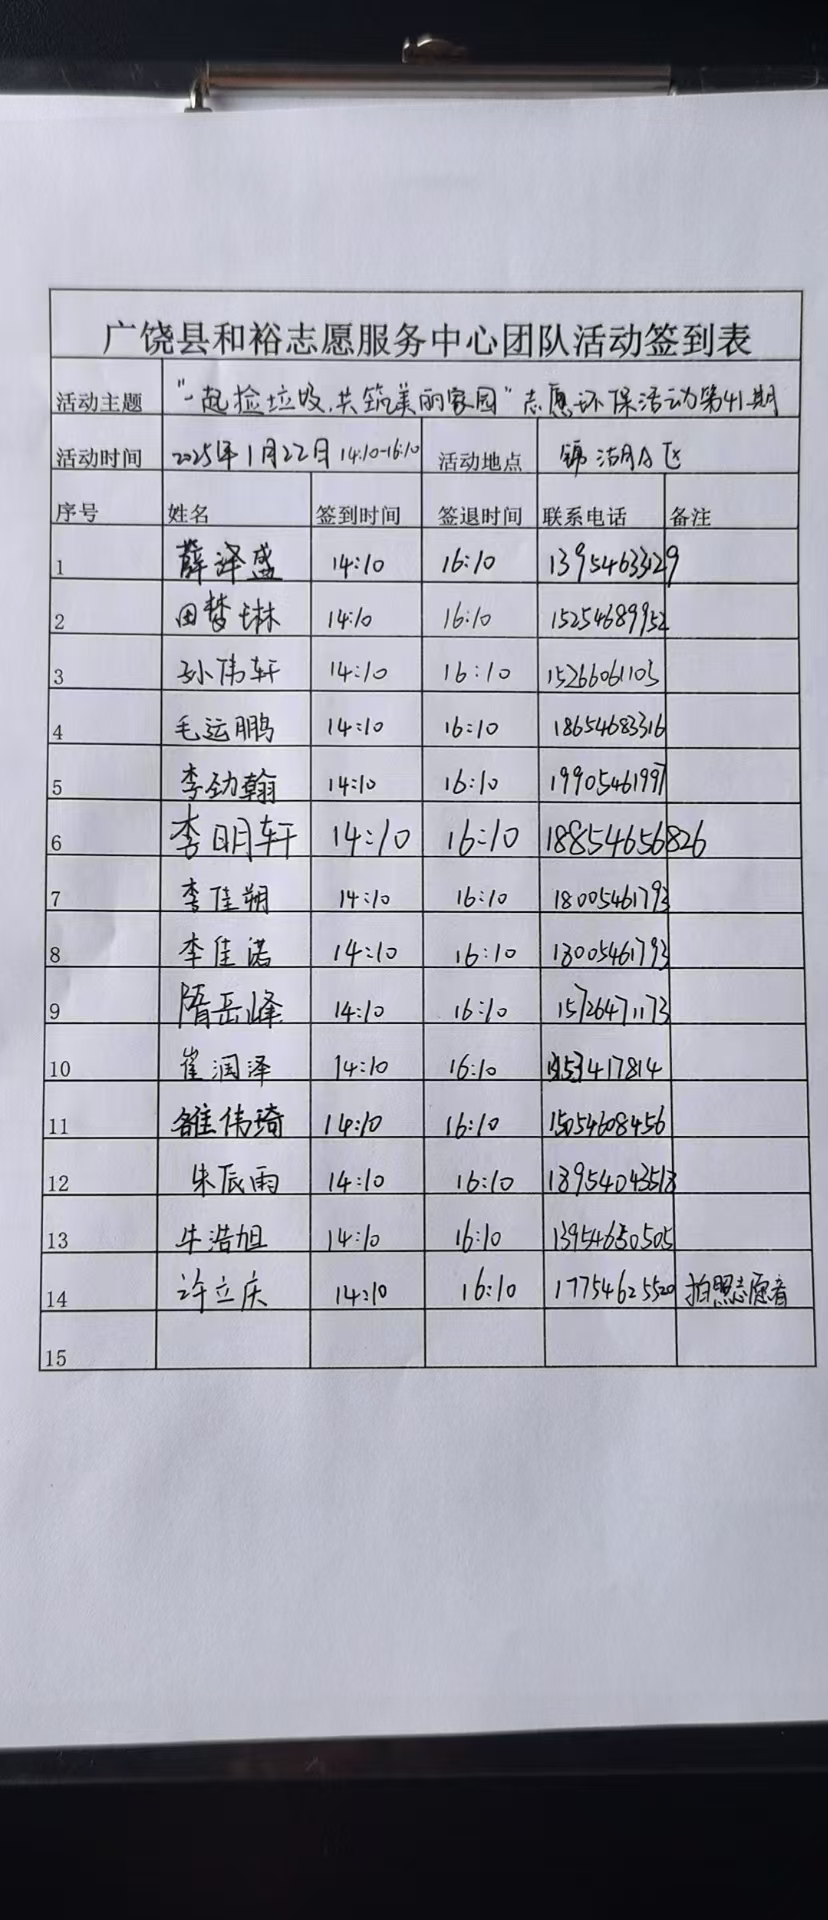 广饶县和裕志愿服务中心团队活动签到表
活动主题 "一起捡垃圾,共筑美丽家园"志愿环保活动第41期
活动时间 2025年1月22日 14:10-16:10 活动地点 锦湖A区
序号 姓名 签到时间 签退时间 联系电话 备注
1 薛泽盛 14:10 16:10 13954633429
2 田梦琳 14:10 16:10 15254689952
3 孙伟轩 14:10 16:10 15266061103
4 毛运鹏 14:10 16:10 18654683316
5 李劲翰 14:10 16:10 19905461997
6 李明轩 14:10 16:10 18854656826
7 李佳朔 14:10 16:10 18005461793
8 李佳诺 14:10 16:10 18005461793
9 隋岳峰 14:10 16:10 15726471173
10 崔润泽 14:10 16:10
11 雒伟琦 14:10 16:10 15054608456
12 朱辰雨 14:10 16:10
13 牛浩旭 14:10 16:10 13954650505
14 许立庆 14:10 16:10 17754625520 拍照志愿者
15